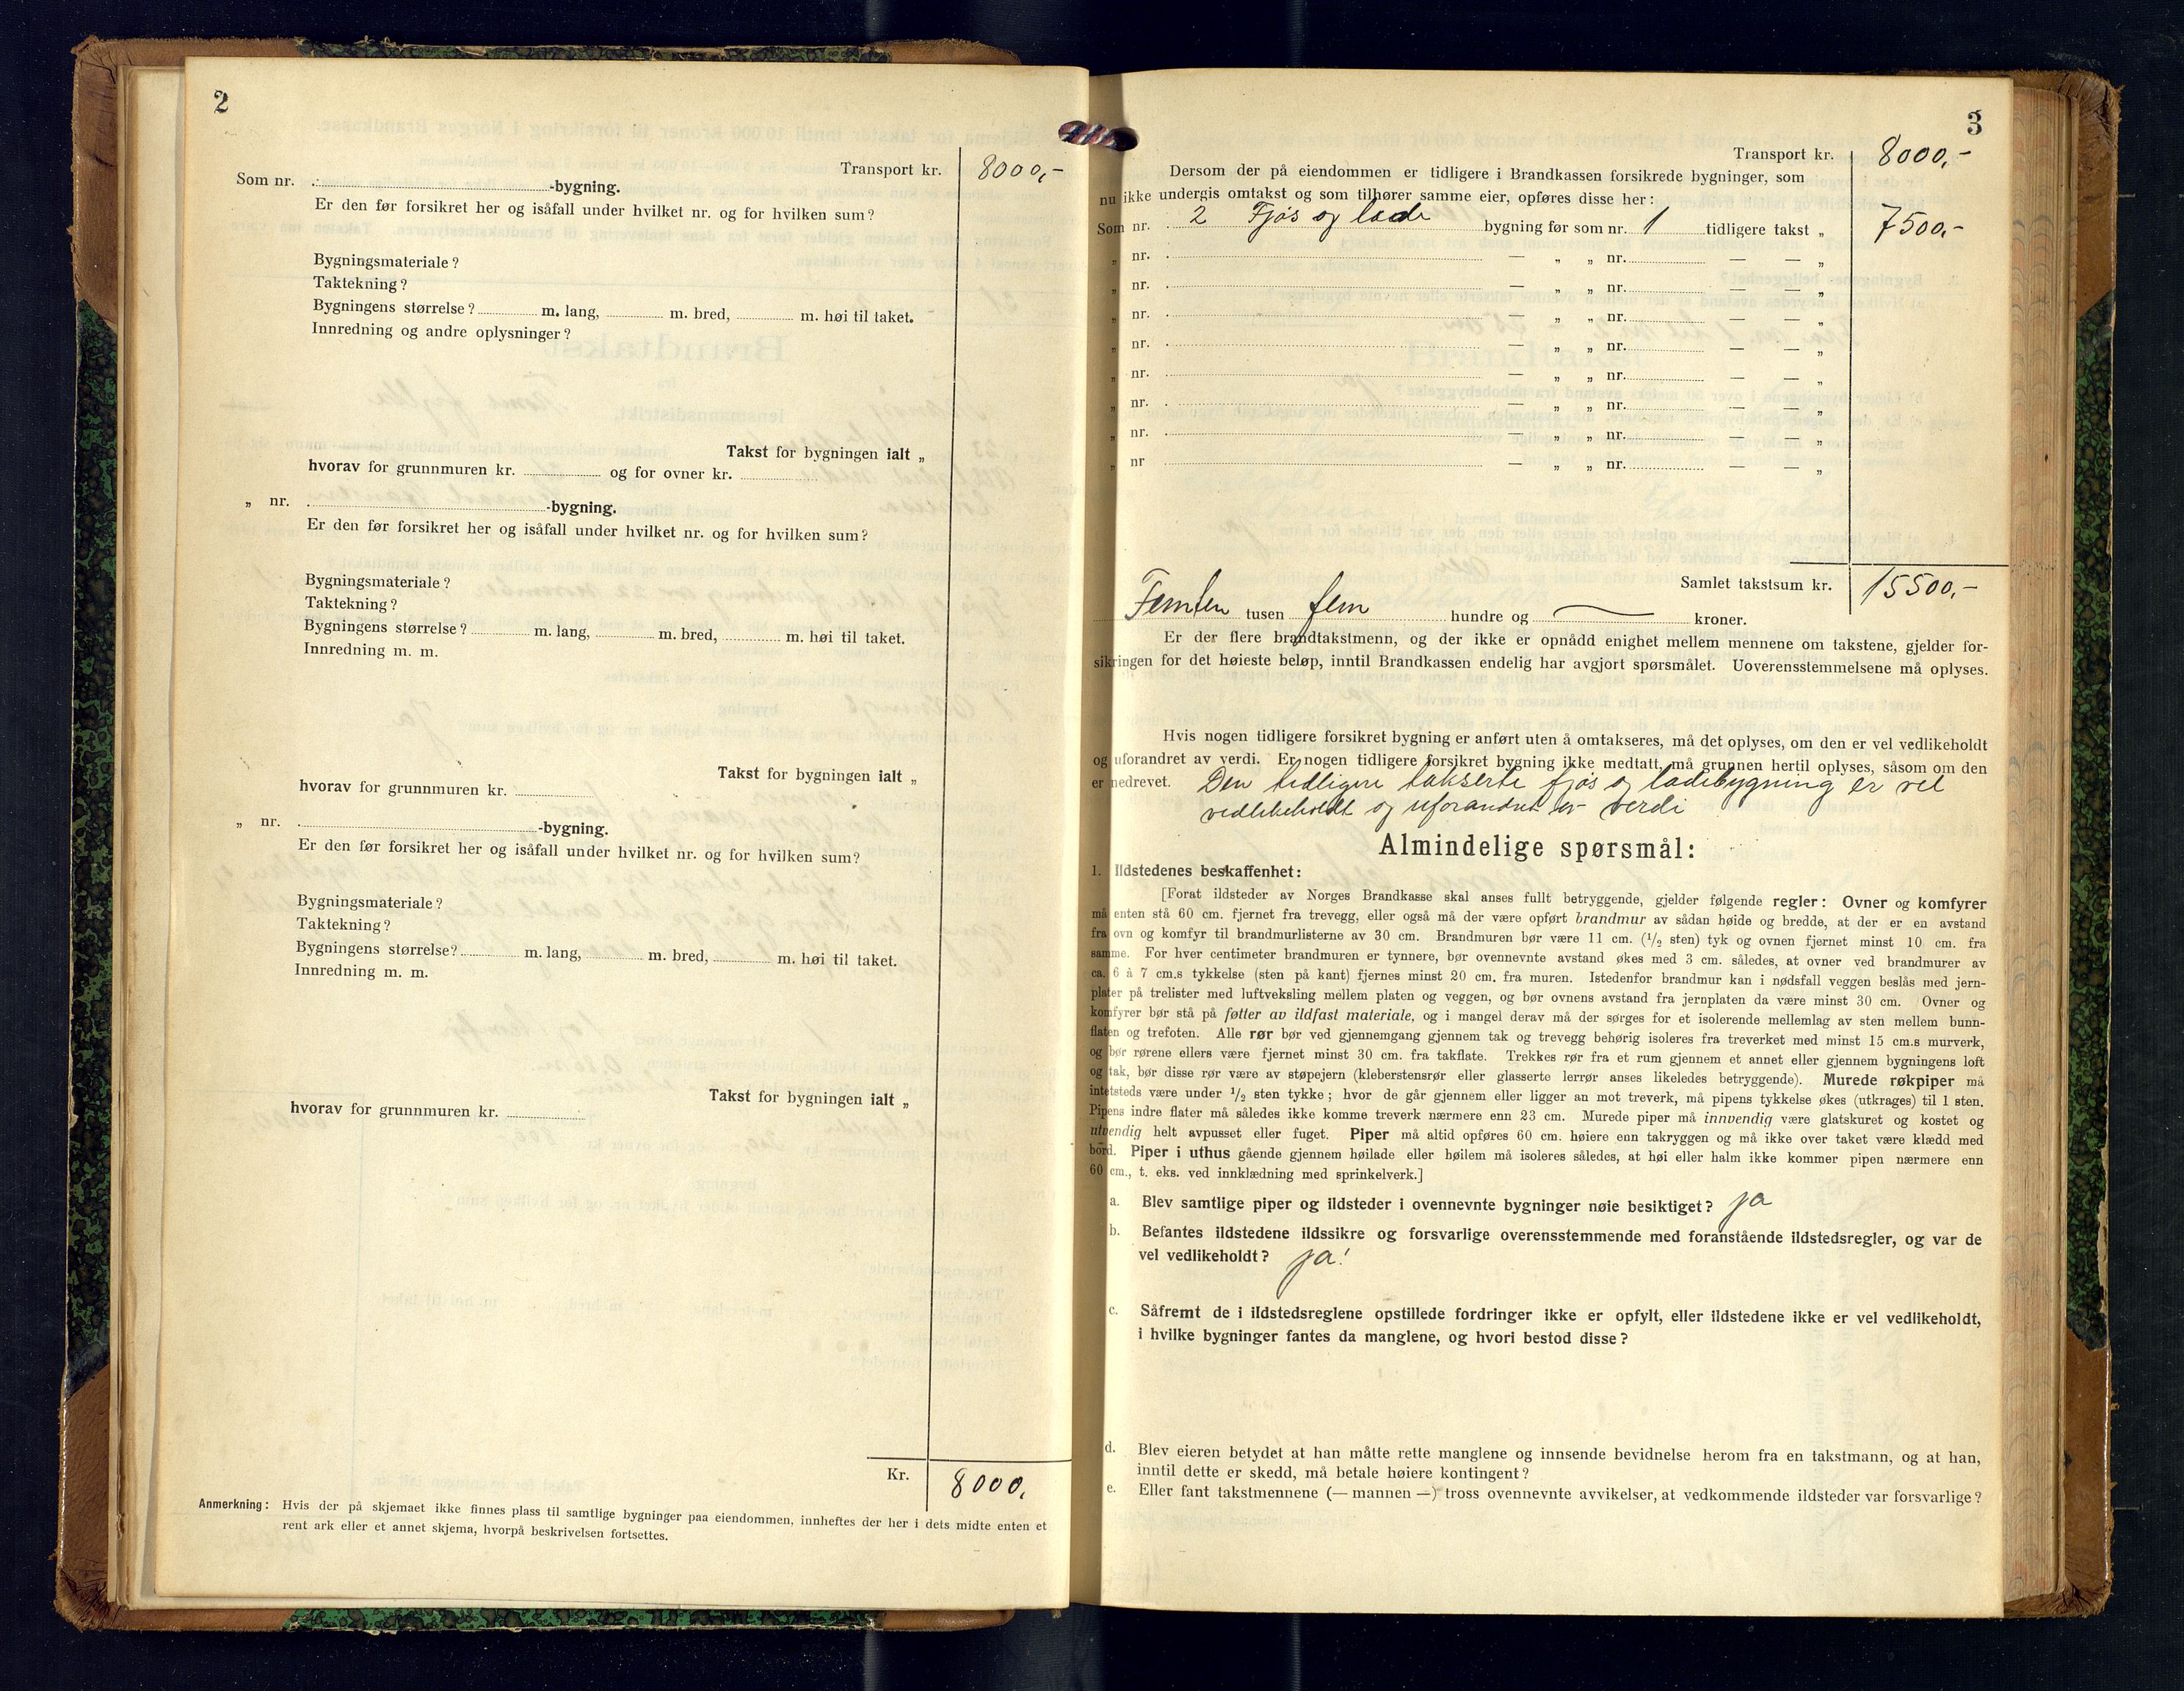 2
Transport kr. 8000,-
Som nr. -bygning.
Er den før forsikret her og isåfall under hvilket nr. og for hvilken sum?
Bygningsmateriale?
Taktekning?
Bygningens størrelse? m. lang, m. bred, m. høi til taket.
Innredning og andre oplysninger?
Takst for bygningen ialt „
hvorav for grunnmuren kr. og for ovner kr.
„ nr. -bygning.
Er den før forsikret her og isåfall under hvilket nr. og for hvilken sum?
Bygningsmateriale?
Taktekning?
Bygningens størrelse? m. lang, m. bred, m. høi til taket.
Innredning m. m.
Takst for bygningen ialt „
hvorav for grunnmuren kr.
„ nr. -bygning.
Er den før forsikret her og isåfall under hvilket nr. og for hvilken sum?
Bygningsmateriale?
Taktekning?
Bygningens størrelse? m. lang, m. bred, m. høi til taket.
Innredning m. m.
Takst for bygningen ialt „
hvorav for grunnmuren kr.
Kr. 8000,
Anmerkning: Hvis der på skjemaet ikke finnes plass til samtlige bygninger paa eiendommen, innheftes der her i dets midte enten et
rent ark eller et annet skjema, hvorpå beskrivelsen fortsettes.
3
Transport kr. 8000,-
Dersom der på eiendommen er tidligere i Brandkassen forsikrede bygninger, som
nu ikke undergis omtakst og som tilhører samme eier, opføres disse her:
Som nr. 2 Fjøs og lade bygning før som nr. 1 tidligere takst „ 7500,-
„ nr. — „ „ nr. — — „
„ nr. — „ „ nr. — — „
„ nr. — „ „ nr. — — „
„ nr. — „ „ nr. — — „
„ nr. — „ „ nr. — — „
„ nr. — „ „ nr. — — „
„ nr. — „ „ nr. — — „
„ nr — „ „ nr. — — „
Samlet takstsum kr. 15500,-
Femten tusen fem hundre og — kroner.
Er der flere brandtakstmenn, og der ikke er opnådd enighet mellem mennene om takstene, gjelder for-
sikringen for det høieste beløp, inntil Brandkassen endelig har avgjort spørsmålet. Uoverensstemmelsene må oplyses.
Hvis nogen tidligere forsikret bygning er anført uten å omtakseres, må det oplyses, om den er vel vedlikeholdt
og uforandret av verdi. Er nogen tidligere forsikret bygning ikke medtatt, må grunnen hertil oplyses, såsom om den
er nedrevet. Den tidligere takserte fjøs og ladebygning er vel
vedlikeholdt og uforandret av verdi
Almindelige spørsmål:
1. Ildstedenes beskaffenhet:
[Forat ildsteder av Norges Brandkasse skal anses fullt betryggende, gjelder følgende regler: Ovner og komfyrer
må enten stå 60 cm. fjernet fra trevegg, eller også må der være opført brandmur av sådan høide og bredde, at der er en avstand
fra ovn og komfyr til brandmurlisterne av 30 cm. Brandmuren bør være 11 cm. (1/2 sten) tyk og ovnen fjernet minst 10 cm. fra
samme. For hver centimeter brandmuren er tynnere, bør ovennevnte avstand økes med 3 cm. således, at ovner ved brandmurer av
ca. 6 à 7 cm.s tykkelse (sten på kant) fjernes minst 20 cm. fra muren. Istedenfor brandmur kan i nødsfall veggen beslås med jern-
plater på trelister med luftveksling mellem platen og veggen, og bør ovnens avstand fra jernplaten da være minst 30 cm. Ovner og
komfyrer bør stå på føtter av ildfast materiale, og i mangel derav må der sørges for et isolerende mellemlag av sten mellem bunn-
flaten og trefoten. Alle rør bør ved gjennemgang gjennem tak og trevegg behørig isoleres fra treverket med minst 15 cm.s murverk,
og bør rørene ellers være fjernet minst 30 cm. fra takflate. Trekkes rør fra et rum gjennem et annet eller gjennem bygningens loft
og tak, bør disse rør være av støpejern (kleberstensrør eller glasserte lerrør anses likeledes betryggende). Murede røkpiper må
intetsteds være under 1/2 sten tykke; hvor de går gjennem eller ligger an mot treverk, må pipens tykkelse økes (utkrages) til 1 sten.
Pipens indre flater må således ikke komme treverk nærmere enn 23 cm. Murede piper må innvendig være glatskuret og kostet og
utvendig helt avpusset eller fuget. Piper må altid opføres 60 cm. høiere enn takryggen og må ikke over taket være klædd med
bord. Piper i uthus gående gjennem høilade eller høilem må isoleres således, at høi eller halm ikke kommer pipen nærmere enn
60 cm., t. eks. ved innklædning med sprinkelverk.]
a. Blev samtlige piper og ildsteder i ovennevnte bygninger nøie besiktiget? ja
b. Befantes ildstedene ildssikre og forsvarlige overensstemmende med foranstående ildstedsregler, og var de
vel vedlikeholdt? ja!
c. Såfremt de i ildstedsreglene opstillede fordringer ikke er opfylt, eller ildstedene ikke er vel vedlikeholdt,
i hvilke bygninger fantes da manglene, og hvori bestod disse?
d. Blev eieren betydet at han måtte rette manglene og innsende bevidnelse herom fra en takstmann, og at han,
inntil dette er skedd, må betale høiere kontingent?
e. Eller fant takstmennene (— mannen —) tross ovennevnte avvikelser, at vedkommende ildsteder var forsvarlige?